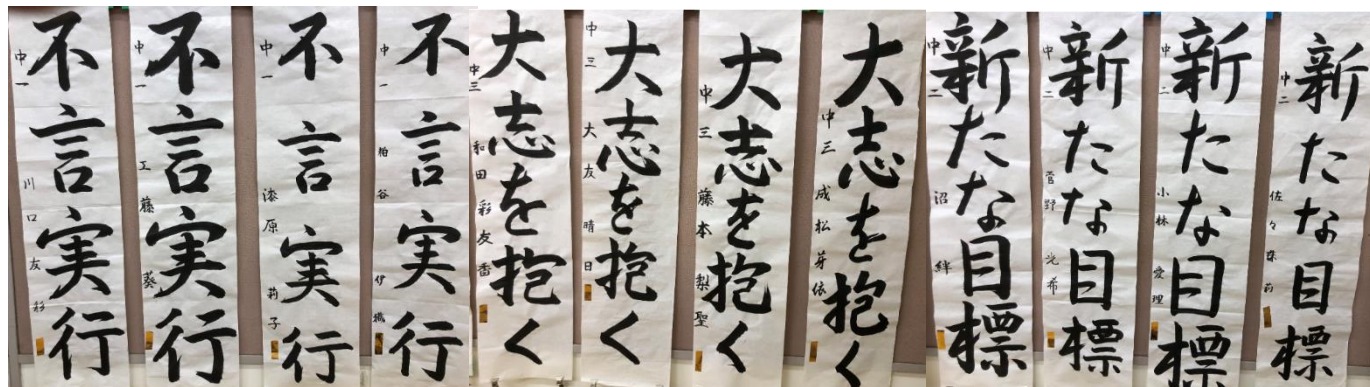 不言実行
中一 川口友彩
不言実行
中一 工藤葵
不言実行
中一 漆原莉子
不言実行
中一 柏谷伊織
大志を抱く
中三 和田彩友香
大志を抱く
中三 大友晴日
大志を抱く
中三 藤本梨聖
大志を抱く
中三 成松芽依
新たな目標
中二 沼絆
新たな目標
中二 菅野光希
新たな目標
中二 小林愛理
新たな目標
中二 佐々木